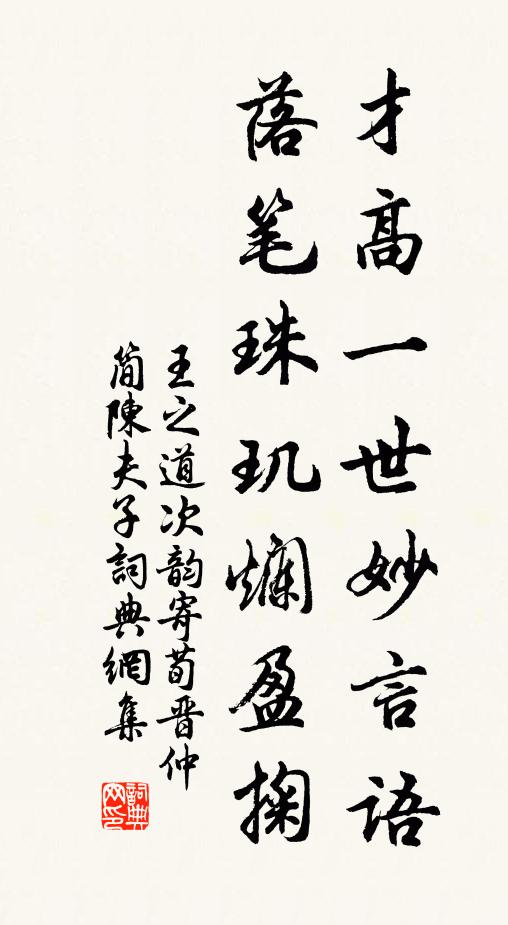 才高一世妙言语
落笔珠玑烂盈掬
王之道次韵寄荀晋仲
简陈夫子詞典網集
詞典网印